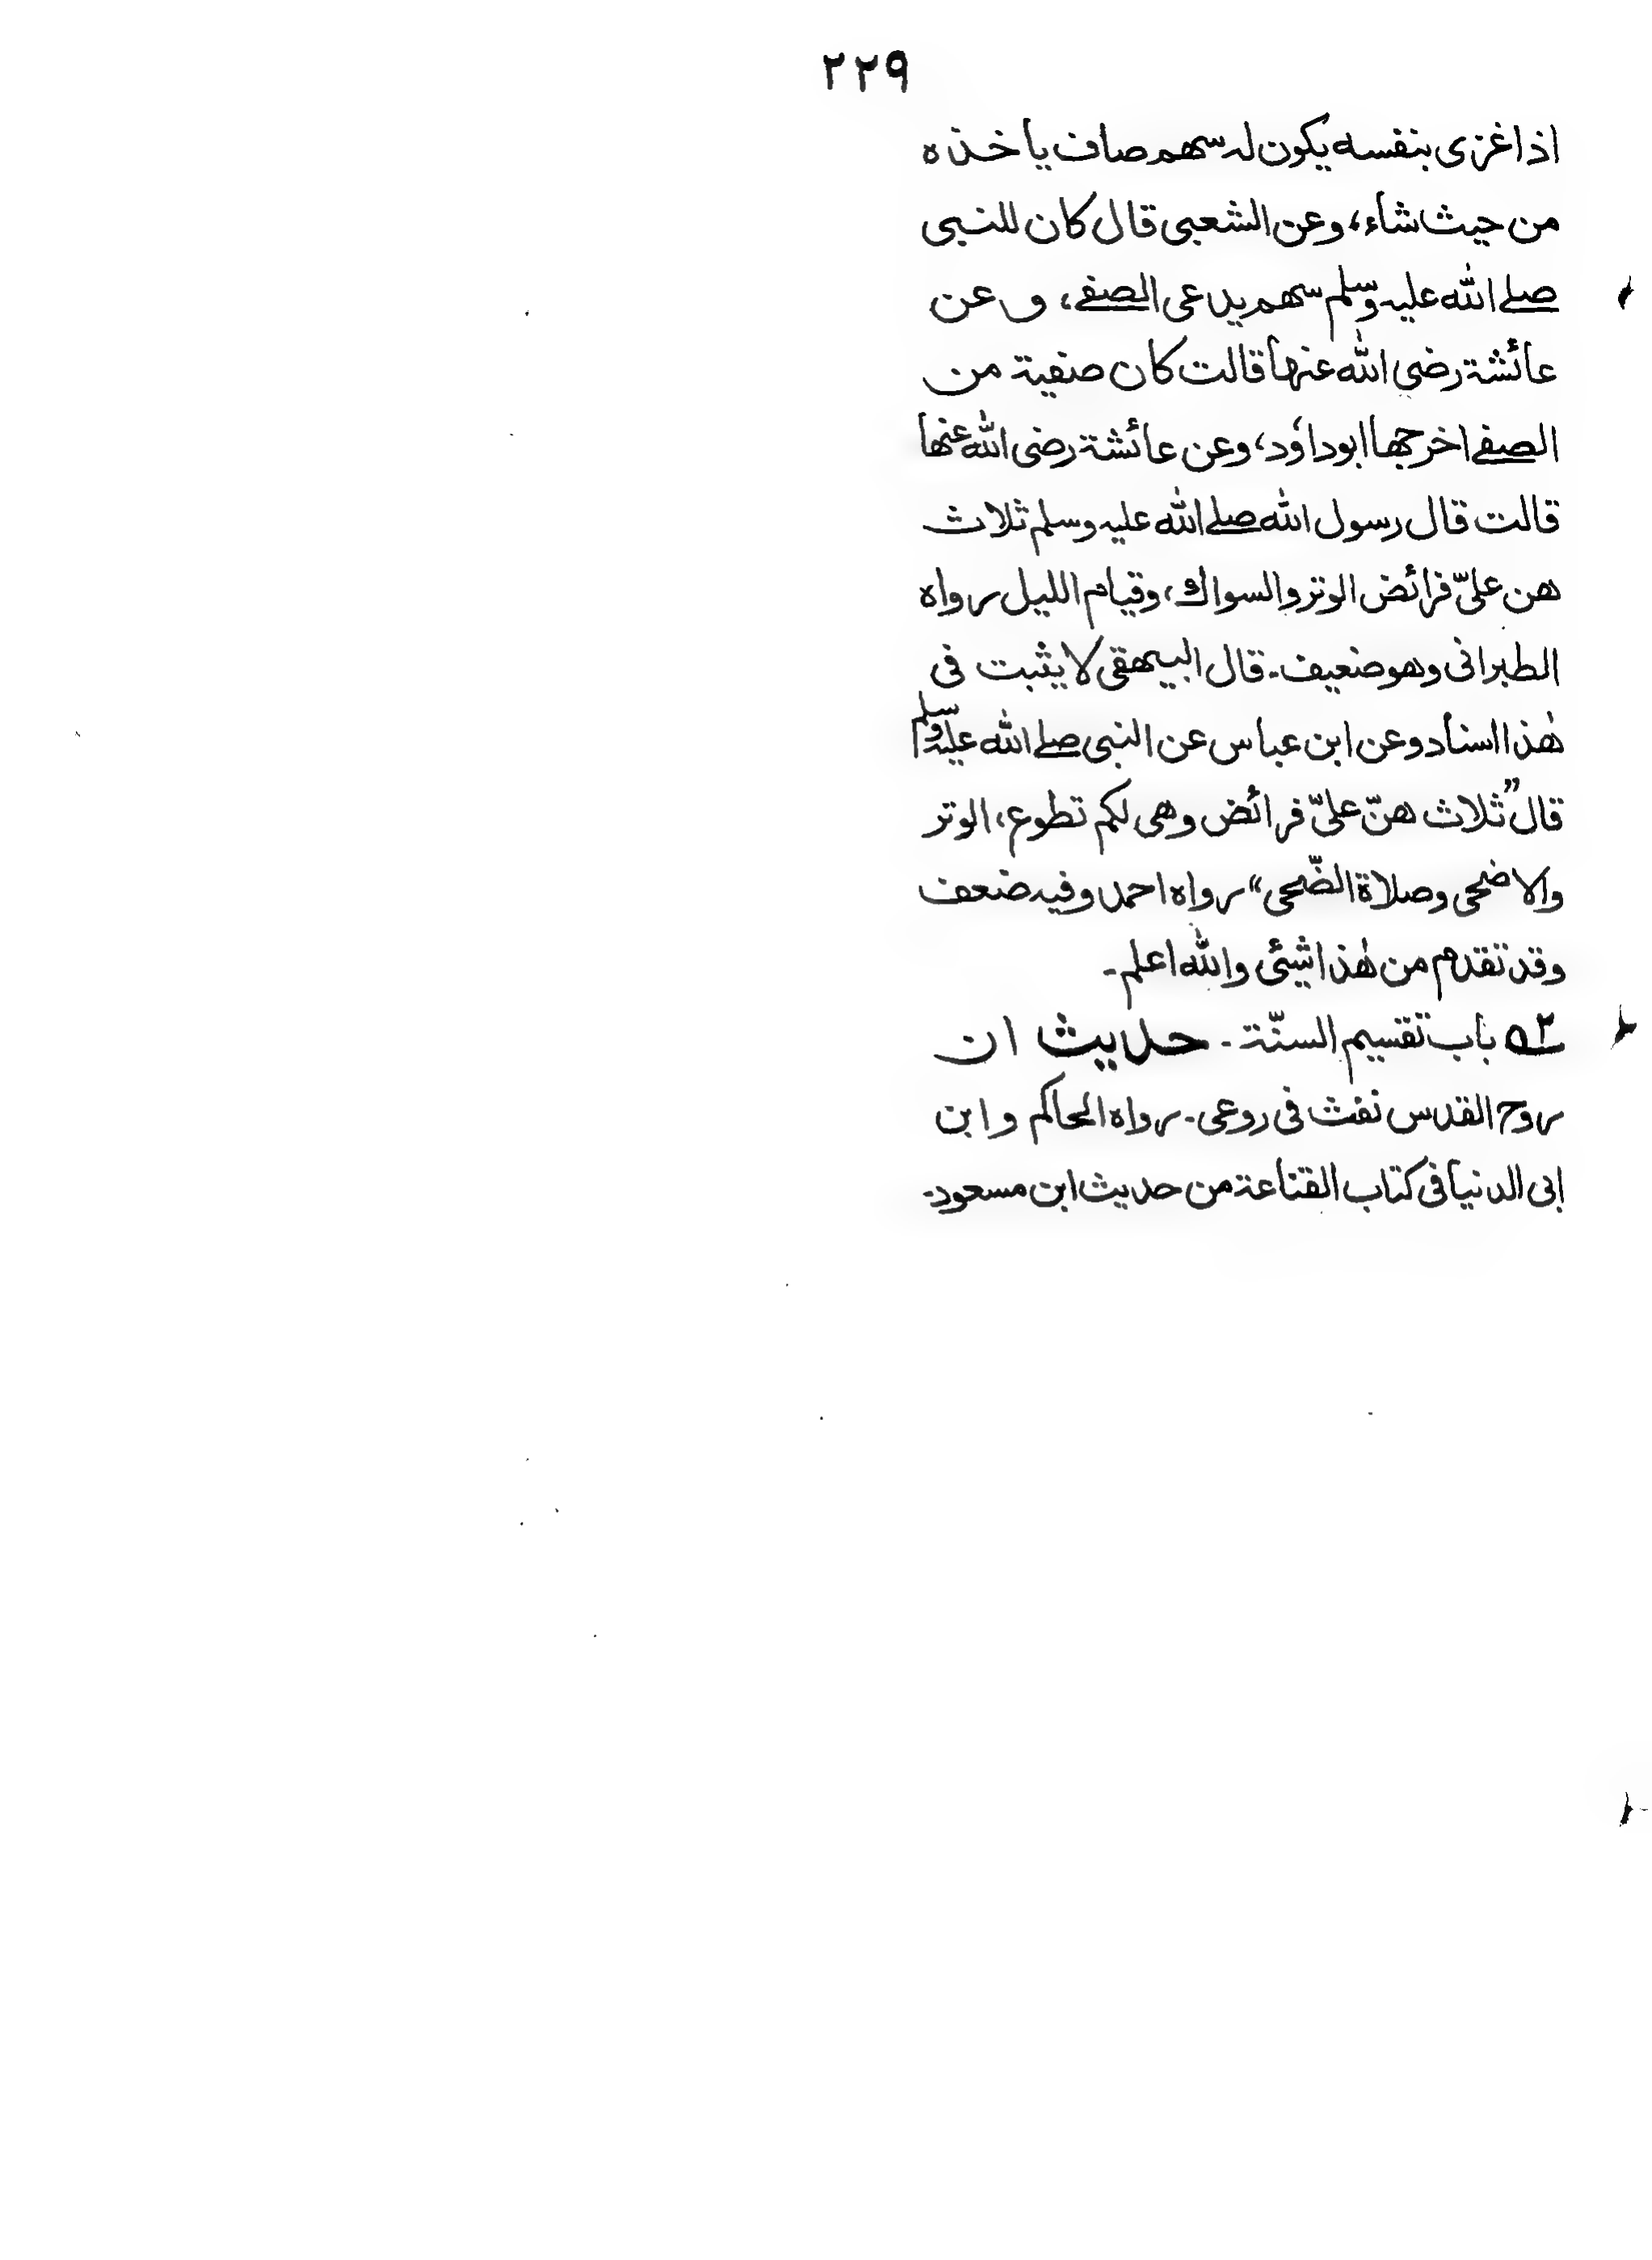 ٢٢٩
اذا غزى بنفسه يكون له سهم صاف ياخذه
من حيث شاء، وعن الشعبى قال كان للنبى
صلے الله عليه وسلم سهم يدعى الصفے، وعن
عائشة رضى الله عنها قالت كان صفية من
الصفے اخرجها ابو داؤد، وعن عائشة رضى الله عنها
قالت قال رسول الله صلے الله عليه وسلم ثلاث
هن علىّ فرائض الوتر والسواك، وقيام الليل رواه
الطبرانى وهو ضعيف۔ قال البيهقى لا يثبت فى
هٰذا اسناد وعن ابن عباس عن النبى صلے الله عليه وسلم
قال ”ثلاث هنّ علىّ فرائض وهى لكم تطوع، الوتر
والاضحى وصلاة الضّحى“ رواه احمد وفيه ضعف
وقد تقدم من هٰذا شيئى والله اعلم۔
٥٢ باب تقسيم السنّة۔ حديث ان
روح القدس نفث فى روعى۔ رواه الحاكم وابن
ابى الدنيا فى كتاب القناعة من حديث ابن مسعود۔